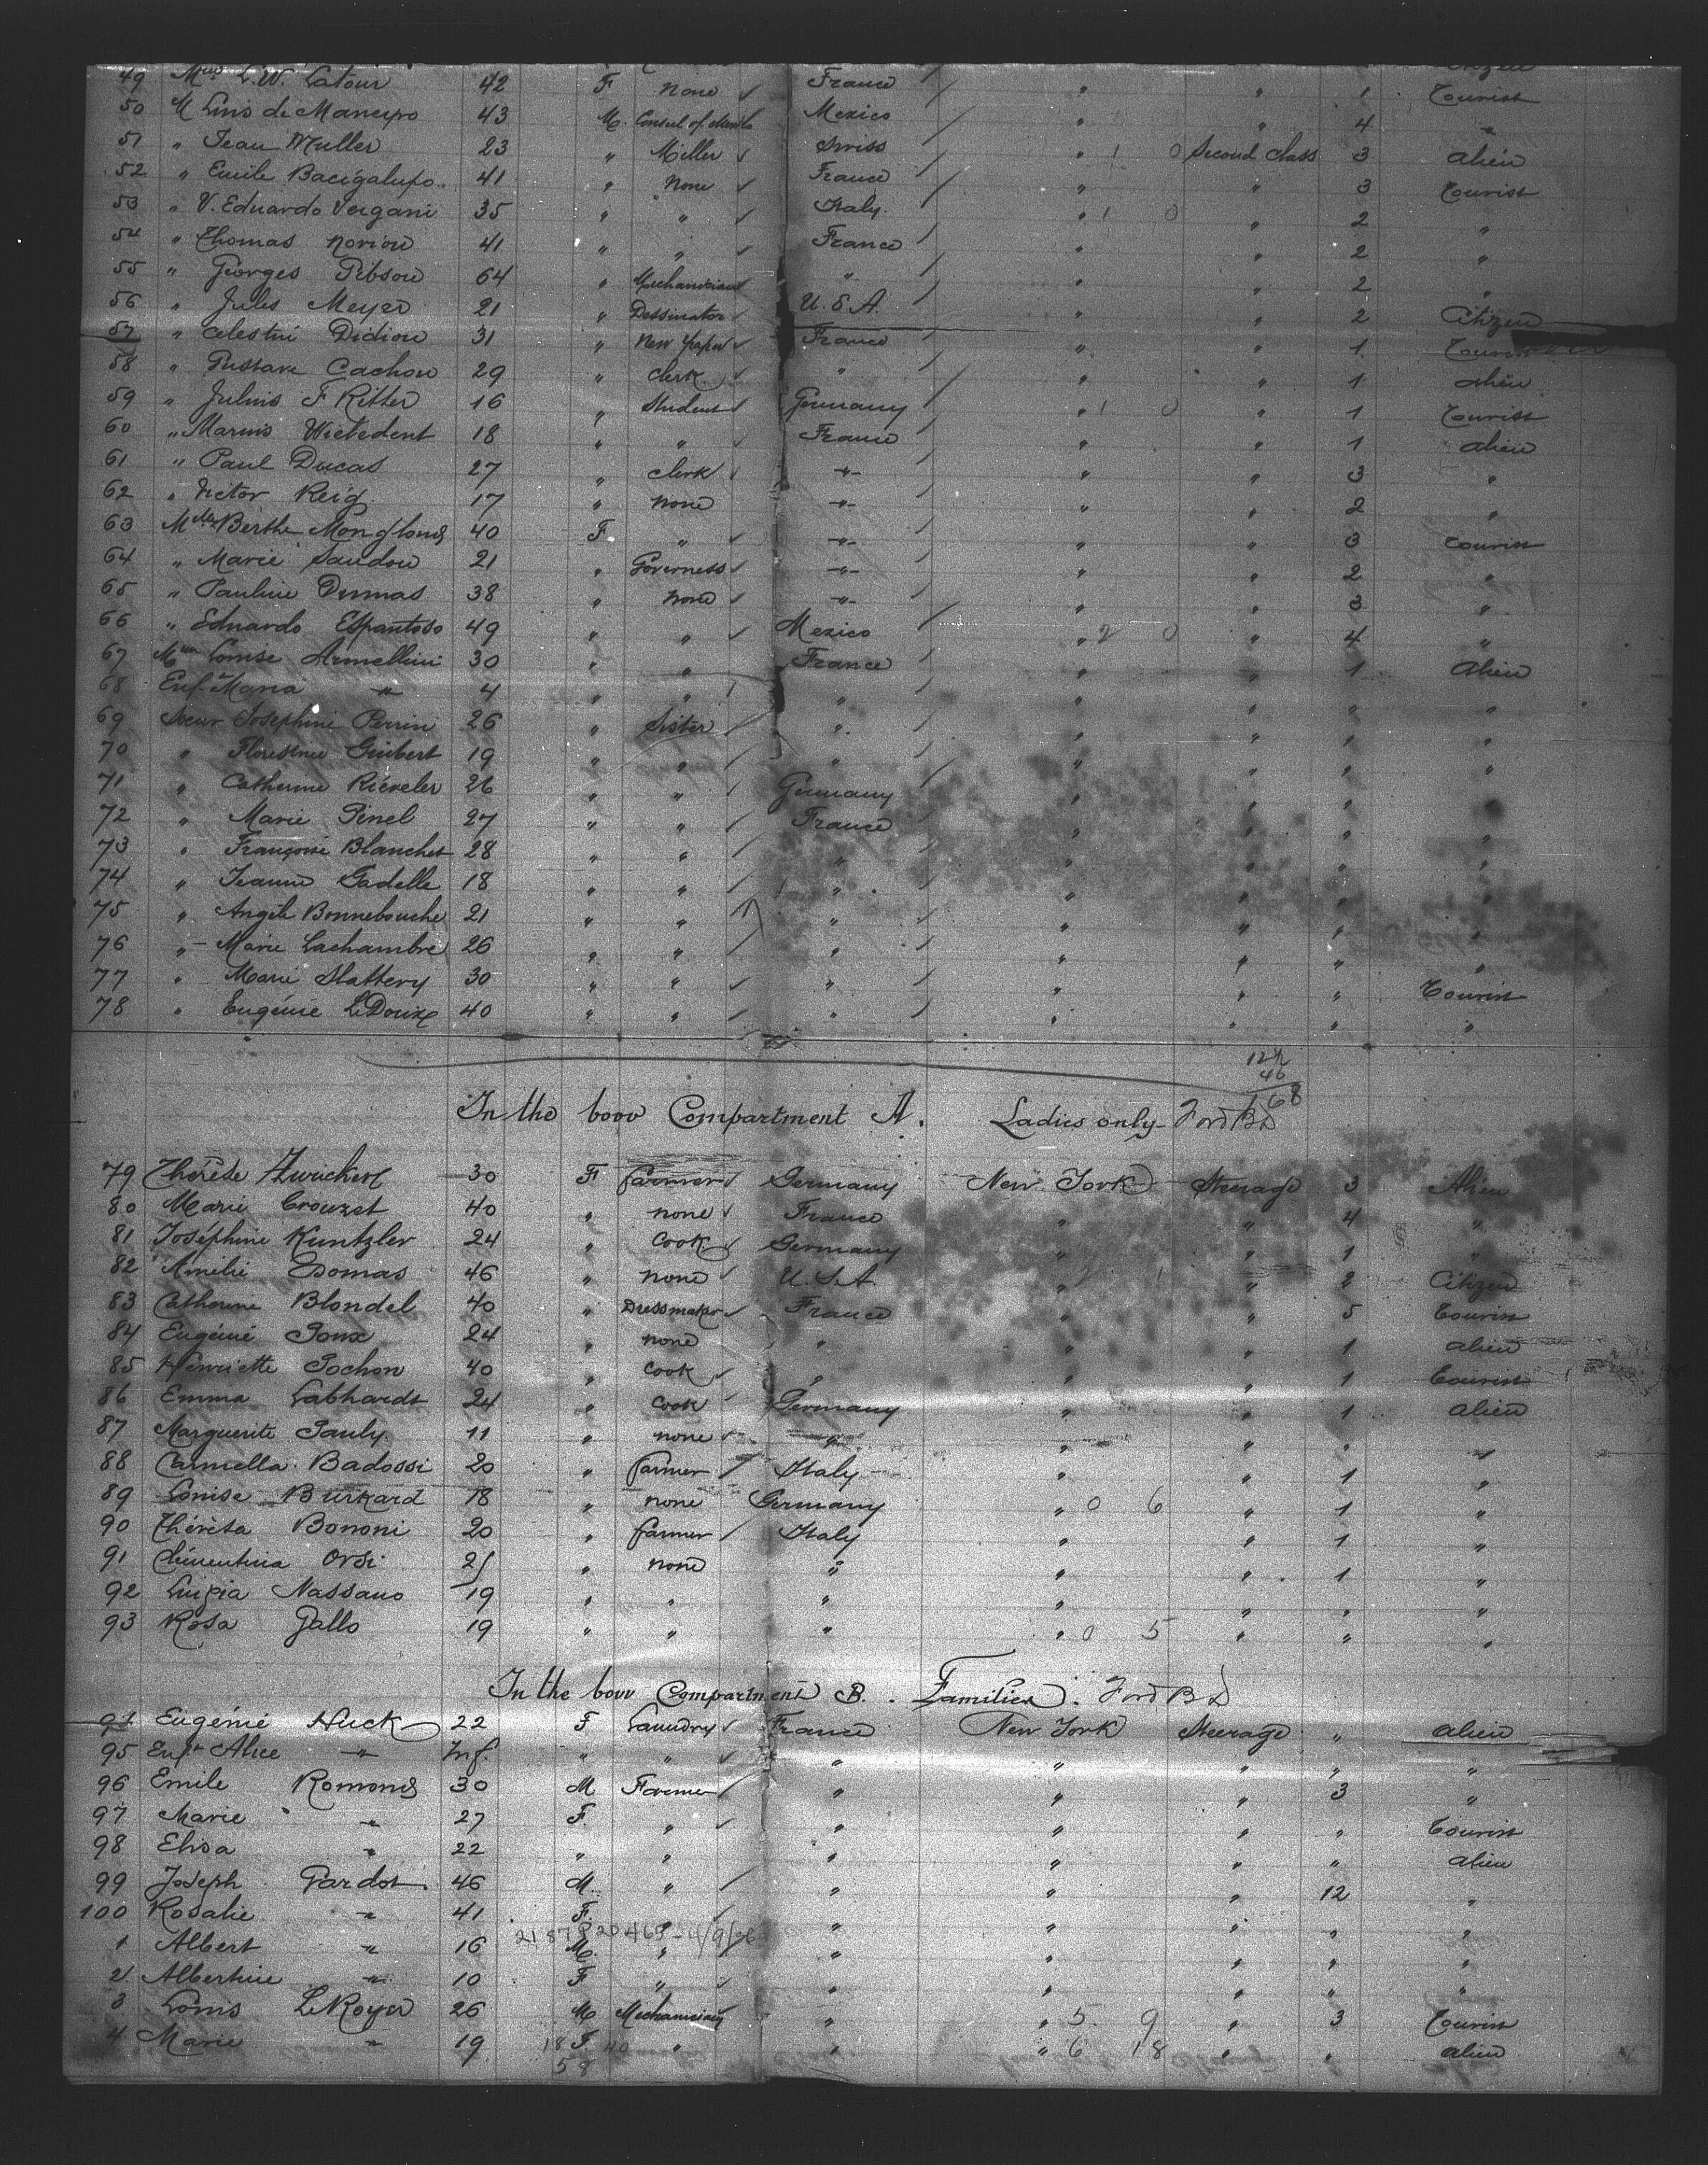 49 Mme L. W. Latour 42 F None ✓ France / " " 1 Tourist
50 M Luis de Maneyro 43 M. Consul of Mexico Mexico / " " 4 "
51 " Jean Muller 23 " Miller ✓ Swiss / " 1 0 Second class 3 Alien
52 " Emile Bacigalupo 41 " None ✓ France / " " 3 Tourist
53 " V. Eduardo Vergani 35 " " ✓ Italy / " 1 0 " 2 "
54 " Thomas 41 " " ✓ France / " " 2 "
55 " Georges Gibson 64 " Mechanician ✓ " / " " 2 "
56 " Jules Meyer 21 " Dessinator ✓ U.S.A. " " 2 Citizen
57 " Celestin Didion 31 " New paper ✓ France / " " 1 Tourist
58 " Gustave Cachon 29 " Clerk ✓ " / " " 1 alien
59 " Julius F Ritter 16 " Student ✓ Germany / " 1 0 " 1 Tourist
60 " Marius 18 " " ✓ France / " " 1 alien
61 " Paul Ducas 27 " clerk ✓ " / " " 3 "
62 " Victor Reig 17 " none " / " " 2 "
63 Berthe 40 F " ✓ " / " " 3 Tourist
64 " Marie Sandou 21 " Governess ✓ " / " " 2 "
65 " Pauline Dumas 38 " none ✓ " / " " 3 "
66 " Eduardo Espantoso 49 " " ✓ Mexico / " 2 0 " 4 "
67 Mme Louise Armellini 30 " " France / " " 1 Alien
68 Enf. Maria " 4 " " / " " " " "
69 Soeur Josephine Perrin 26 " Sister / " / " " " "
70 " Guibert 19 " " / " / " " " "
71 " Catherine Rieveler 26 " " / Germany / " " " "
72 " Marie Pinel 27 " " / France " " " "
73 " Françoise Blanchet 28 " " / " " " " "
74 " Jeanne Gadelle 18 " " / " / " " " "
75 " Angèle Bonnebouche 21 " " " / " " " "
76 " Marie Lachambre 26 " " / " / " " " "
77 " Marie Slattery 30 " " ✓ " / " " " Tourist
78 " Eugénie LeDoux 40 " " ✓ " / " " " "
122
46
168
In the bow Compartment A. Ladies only Forwd BD
79 Thérèse Zwickert 30 F farmer ✓ Germany New York Steerage 3 Alien
80 Marie Crouzet 40 " none ✓ France " " 4 "
81 Joséphine Kuntzler 24 " Cook ✓ Germany " " 1 "
82 Amélie Domas 46 " none ✓ U.S.A. " " 2 Citizen
83 Catherine Blondel 40 " Dressmaker ✓ France " " 5 Tourist
84 Eugénie Joux 24 " none " " " 1 alien
85 Henriette Pochon 40 " Cook ✓ " " " 1 Tourist
86 Emma Labhardt 24 " Cook ✓ Germany " " 1 alien
87 Marguerite Pauly 11 " none ✓ " " " " "
88 Carmella Badossi 20 " farmer / Italy " " 1 "
89 Louise Burkard 18 " none Germany " 0 6 " 1 "
90 Thérèsa Bononi 20 " farmer / Italy " " 1 "
91 Clementina Orsi 21 " none " " " 1 "
92 Luigia Nassano 19 " " " " " " "
93 Rosa Gallo 19 " " " " 0 5 " " "
In the bow Compartment B. Families. Forwd BD
94 Eugénie Huck 22 F Laundry ✓ France New York Steerage " alien
95 Enft Alice " Inf. " " ✓ " " " " "
96 Emile Romond 30 M Farmer / " " " 3 "
97 Marie " 27 F. " ✓ " " " " Tourist
98 Elisa " 22 " " " " " " alien
99 Joseph Pardot 46 M. " / " " " 12 "
100 Rosalie " 41 F. " ✓ " " " " "
1 Albert " 16 M. " " " " " "
2 Albertine " 10 F " ✓ " " " " "
3 Louis LeRoyer 26 M Mechanician ✓ " " 5 9 " 3 Tourist
4 Marie " 19 18 F 40 " " " 6 18 " " alien
58